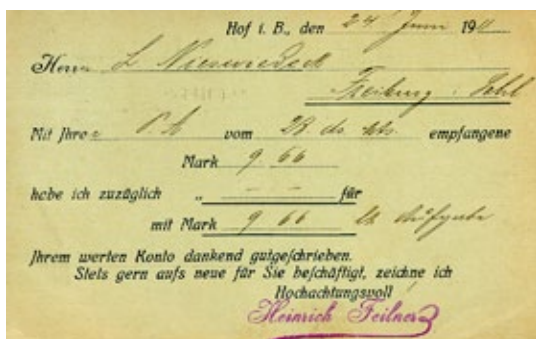 Hof i. B., den 24 Juni 1911
Herrn L.
Freiburg i. Schl
Mit Ihrer P. A. vom 23. ds. Mts. empfangene
Mark 9 66
habe ich zuzüglich „ — — für
mit Mark 9 66 lt Aufgabe
Ihrem werten Konto dankend gutgeschrieben.
Stets gern aufs neue für Sie beschäftigt, zeichne ich
Hochachtungsvoll
Heinrich Feilner